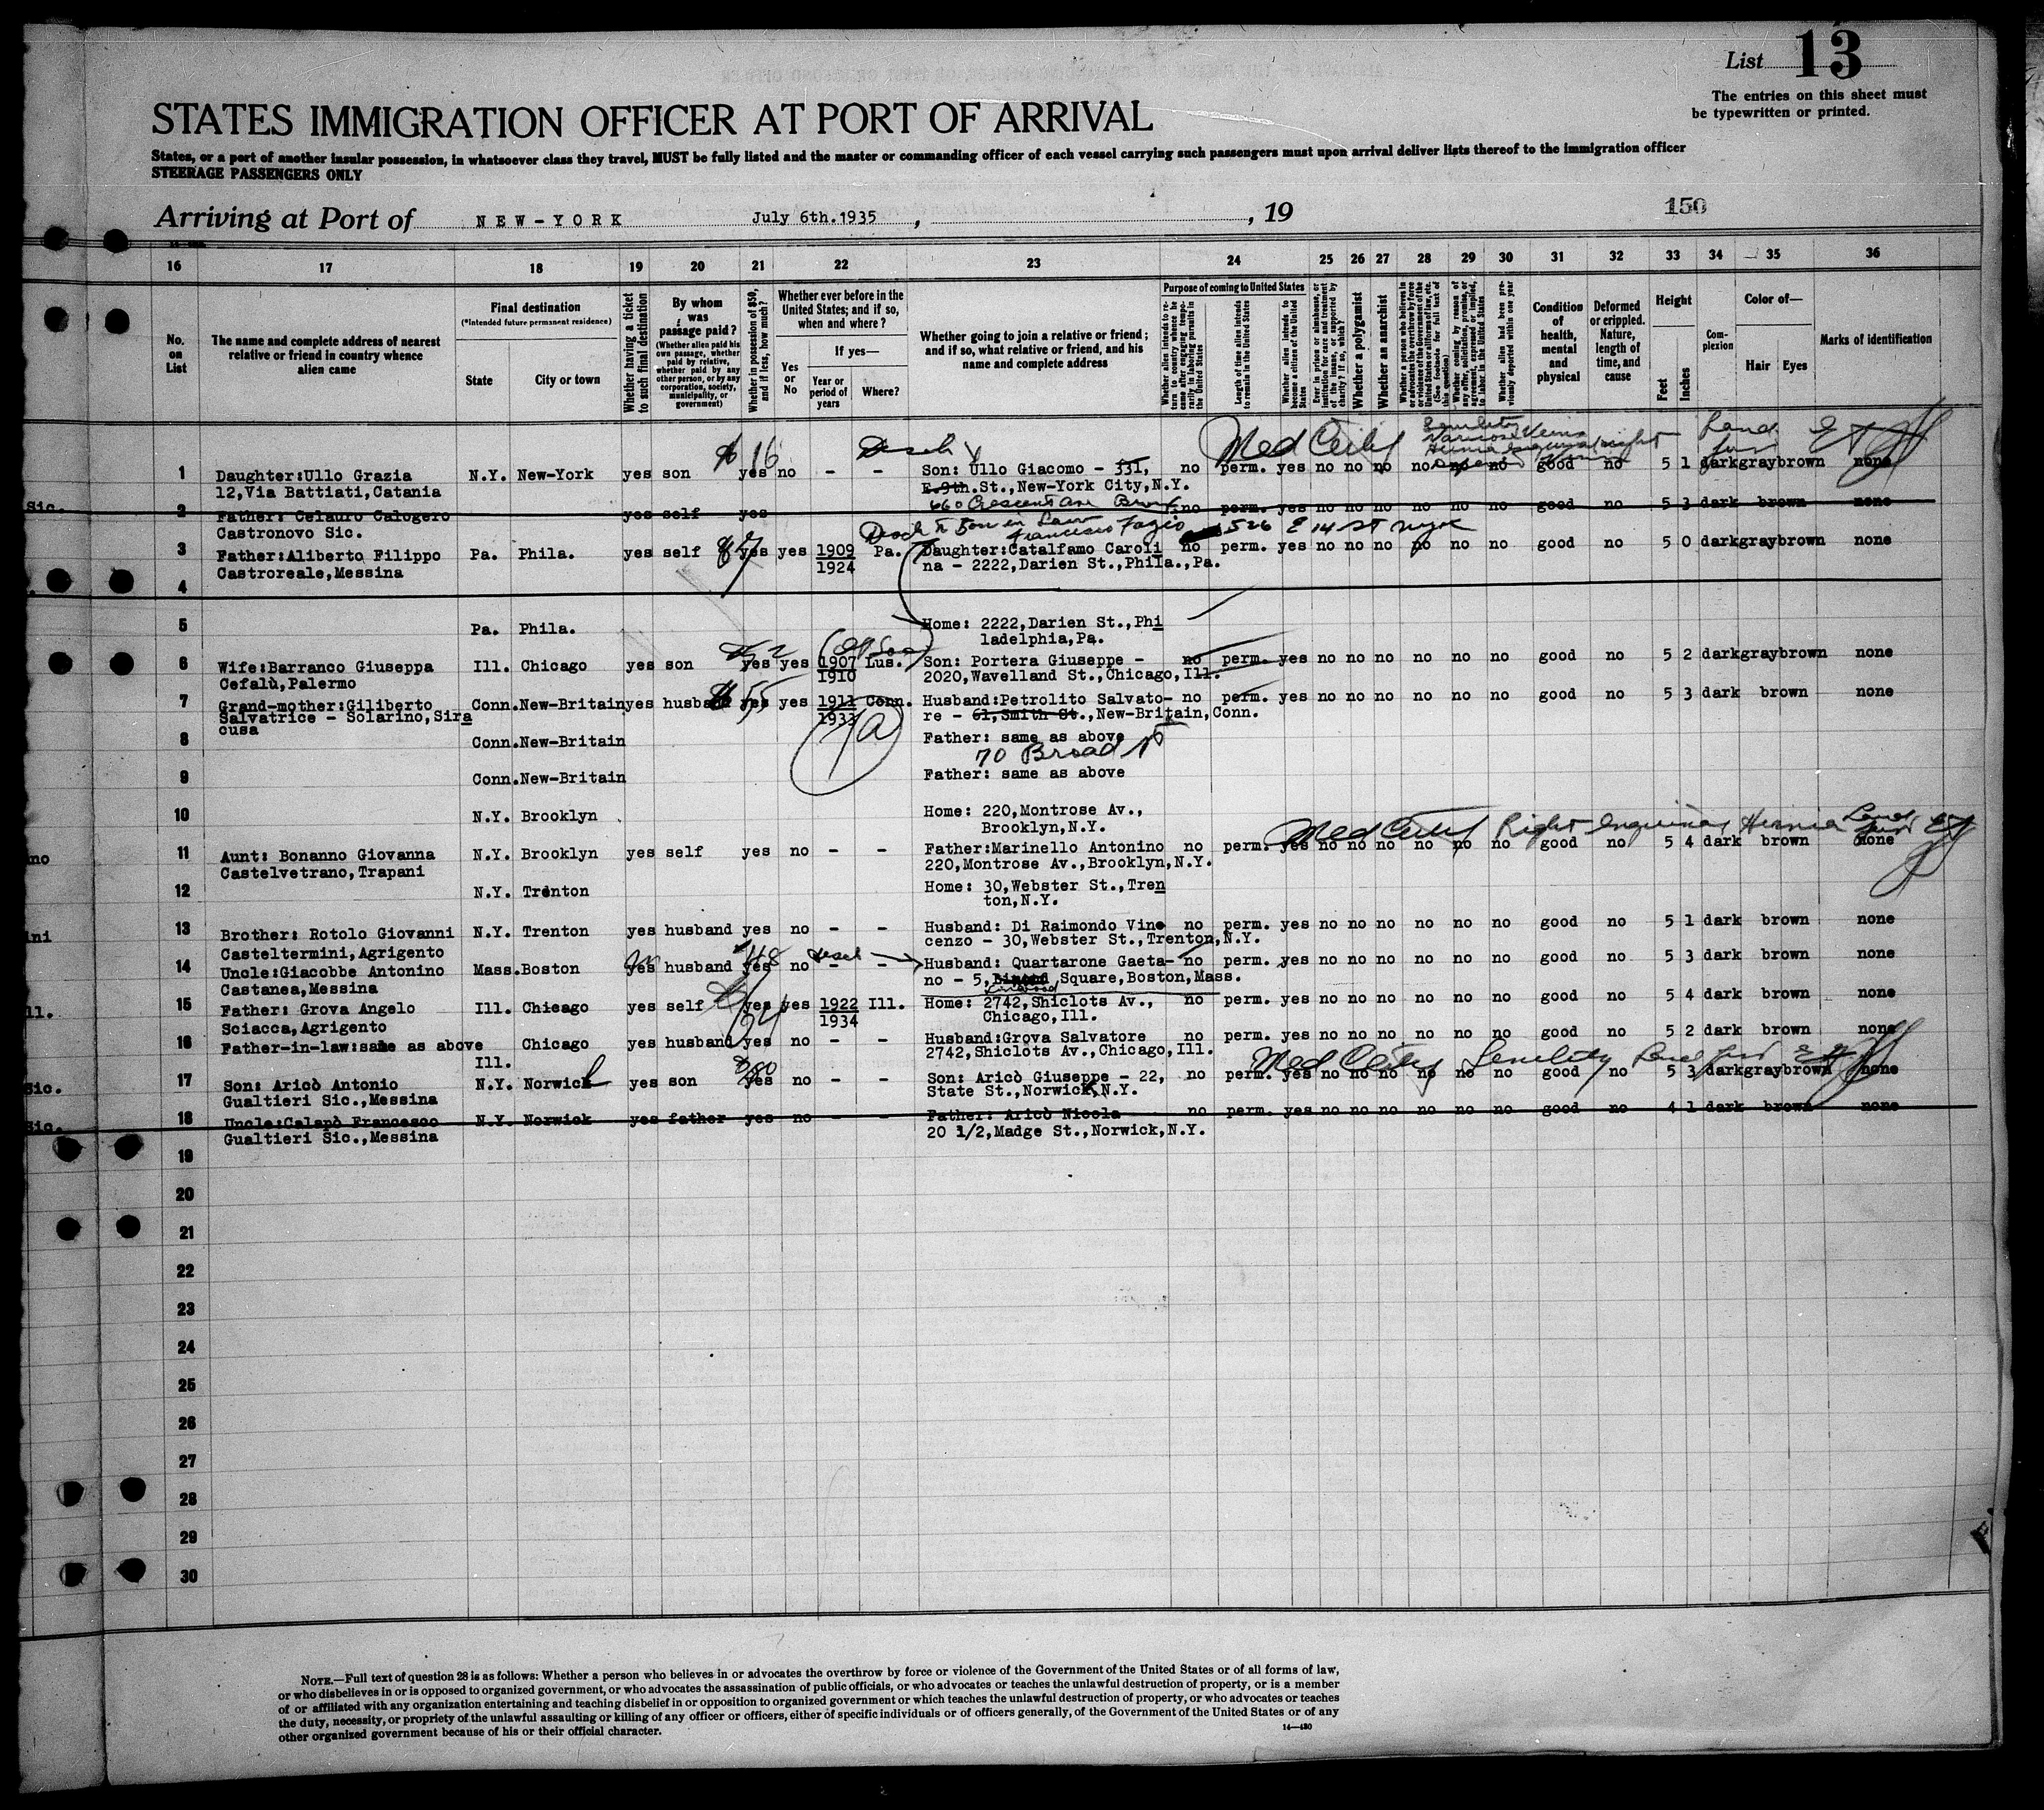 List 13
The entries on this sheet must
be typewritten or printed.
STATES IMMIGRATION OFFICER AT PORT OF ARRIVAL
States, or a port of another insular possession, in whatsoever class they travel, MUST be fully listed and the master or commanding officer of each vessel carrying such passengers must upon arrival deliver lists thereof to the immigration officer
STEERAGE PASSENGERS ONLY
Arriving at Port of NEW-YORK July 6th.1935, , 19
150
16 17 18 19 20 21 22 23 24 25 26 27 28 29 30 31 32 33 34 35 36
No. on List
The name and complete address of nearest
relative or friend in country whence
alien came
Final destination
(*Intended future permanent residence)
State City or town
Whether having a ticket to such final destination
By whom was passage paid?
(Whether alien paid his own passage, whether paid by relative, whether paid by any other person, or by any corporation, society, municipality, or government)
Whether in possession of $50, and if less, how much?
Whether ever before in the United States; and if so, when and where?
Yes or No
If yes—
Year or period of years
Where?
Whether going to join a relative or friend;
and if so, what relative or friend, and his
name and complete address
Purpose of coming to United States
Whether alien intends to return to country whence he came after engaging temporarily in laboring pursuits in the United States
Length of time alien intends to remain in the United States
Whether alien intends to become a citizen of the United States
Ever in prison or almshouse, or institution for care and treatment of the insane, or supported by charity? If so, which?
Whether a polygamist
Whether an anarchist
Whether a person who believes in or advocates the overthrow by force or violence of the Government of the United States or all forms of law, etc. (See footnote for full text of this question)
Whether coming by reason of any offer, solicitation, promise, or agreement, expressed or implied, to labor in the United States
Whether alien had been previously deported within one year
Condition of health, mental and physical
Deformed or crippled. Nature, length of time, and cause
Height
Feet Inches
Complexion
Color of—
Hair Eyes
Marks of identification
$16 Med Certif Senility
Varicose Veins
1 Daughter:Ullo Grazia N.Y. New-York yes son yes no - - Son: Ullo Giacomo - 331, no perm. yes no no no no no no good no 5 1 dark gray brown none
12,Via Battiati,Catania E.9th.St.,New-York City,N.Y.
660 Crescent Ave Bronx
Sic. 2 Father: Celauro Calogero yes self yes no perm. yes no no no no no no good no 5 3 dark brown none
Castronovo Sic.
Son in Law
Francesco Fazio 526 E 14 St
3 Father:Aliberto Filippo Pa. Phila. yes self yes yes 1909 Pa. Daughter:Catalfamo Caroli no perm. yes no no no no no no good no 5 0 dark gray brown none
Castroreale,Messina 1924 na - 2222,Darien St.,Phila.,Pa.
4
5 Pa. Phila. Home: 2222,Darien St.,Phi
ladelphia,Pa.
6 Wife:Barranco Giuseppa Ill. Chicago yes son yes yes 1907 Lus. Son: Portera Giuseppe - no perm. yes no no no no no no good no 5 2 dark gray brown none
Cefalù,Palermo 1910 2020,Wavelland St.,Chicago,Ill.
7 Grand-mother:Giliberto Conn. New-Britain yes husband $55 yes yes 1911 Conn. Husband:Petrolito Salvato- no perm. yes no no no no no no good no 5 3 dark brown none
Salvatrice - Solarino,Sira 1933 re - 61,Smith St.,New-Britain,Conn.
cusa
8 Conn. New-Britain Father: same as above
70 Broad St
9 Conn. New-Britain Father: same as above
10 N.Y. Brooklyn Home: 220,Montrose Av.,
Brooklyn,N.Y.
Med Certif Right Inguinal Hernia
no 11 Aunt: Bonanno Giovanna N.Y. Brooklyn yes self yes no - - Father:Marinello Antonino no perm. yes no no no no no no good no 5 4 dark brown none
Castelvetrano,Trapani 220,Montrose Av.,Brooklyn,N.Y.
12 N.Y. Trenton Home: 30,Webster St.,Tren
ton,N.Y.
ni 13 Brother: Rotolo Giovanni N.Y. Trenton yes husband yes no - - Husband: Di Raimondo Vine no perm. yes no no no no no no good no 5 1 dark brown none
Casteltermini,Agrigento cenzo - 30,Webster St.,Trenton,N.Y.
14 Uncle:Giacobbe Antonino Mass. Boston yes husband yes no - - Husband: Quartarone Gaeta- no perm. yes no no no no no no good no 5 3 dark brown none
Castanea,Messina no - 5, Square,Boston,Mass.
ll. 15 Father: Grova Angelo Ill. Chicago yes self yes yes 1922 Ill. Home: 2742,Shiclots Av., no perm. yes no no no no no no good no 5 4 dark brown none
Sciacca,Agrigento 1934 Chicago,Ill.
16 Father-in-law:same as above Ill. Chicago yes husband yes no - - Husband:Grova Salvatore no perm. yes no no no no no no good no 5 2 dark brown none
2742,Shiclots Av.,Chicago,Ill.
Med Certif Senility
Sic. 17 Son: Aricò Antonio N.Y. Norwich yes son yes no - - Son: Aricò Giuseppe - 22, no perm. yes no no no no no no good no 5 3 dark gray brown none
Gualtieri Sic.,Messina State St.,Norwick,N.Y.
Sic. 18 Uncle:Calapò Francesco N.Y. Norwick yes father yes no - - Father: Aricò Nicola no perm. yes no no no no no no good no 4 1 dark brown none
Gualtieri Sic.,Messina 20 1/2,Madge St.,Norwick,N.Y.
19
20
21
22
23
24
25
26
27
28
29
30
NOTE.—Full text of question 28 is as follows: Whether a person who believes in or advocates the overthrow by force or violence of the Government of the United States or of all forms of law,
or who disbelieves in or is opposed to organized government, or who advocates the assassination of public officials, or who advocates or teaches the unlawful destruction of property, or is a member
of or affiliated with any organization entertaining and teaching disbelief in or opposition to organized government or which teaches the unlawful destruction of property, or who advocates or teaches
the duty, necessity, or propriety of the unlawful assaulting or killing of any officer or officers, either of specific individuals or of officers generally, of the Government of the United States or of any
other organized government because of his or their official character.
14—430